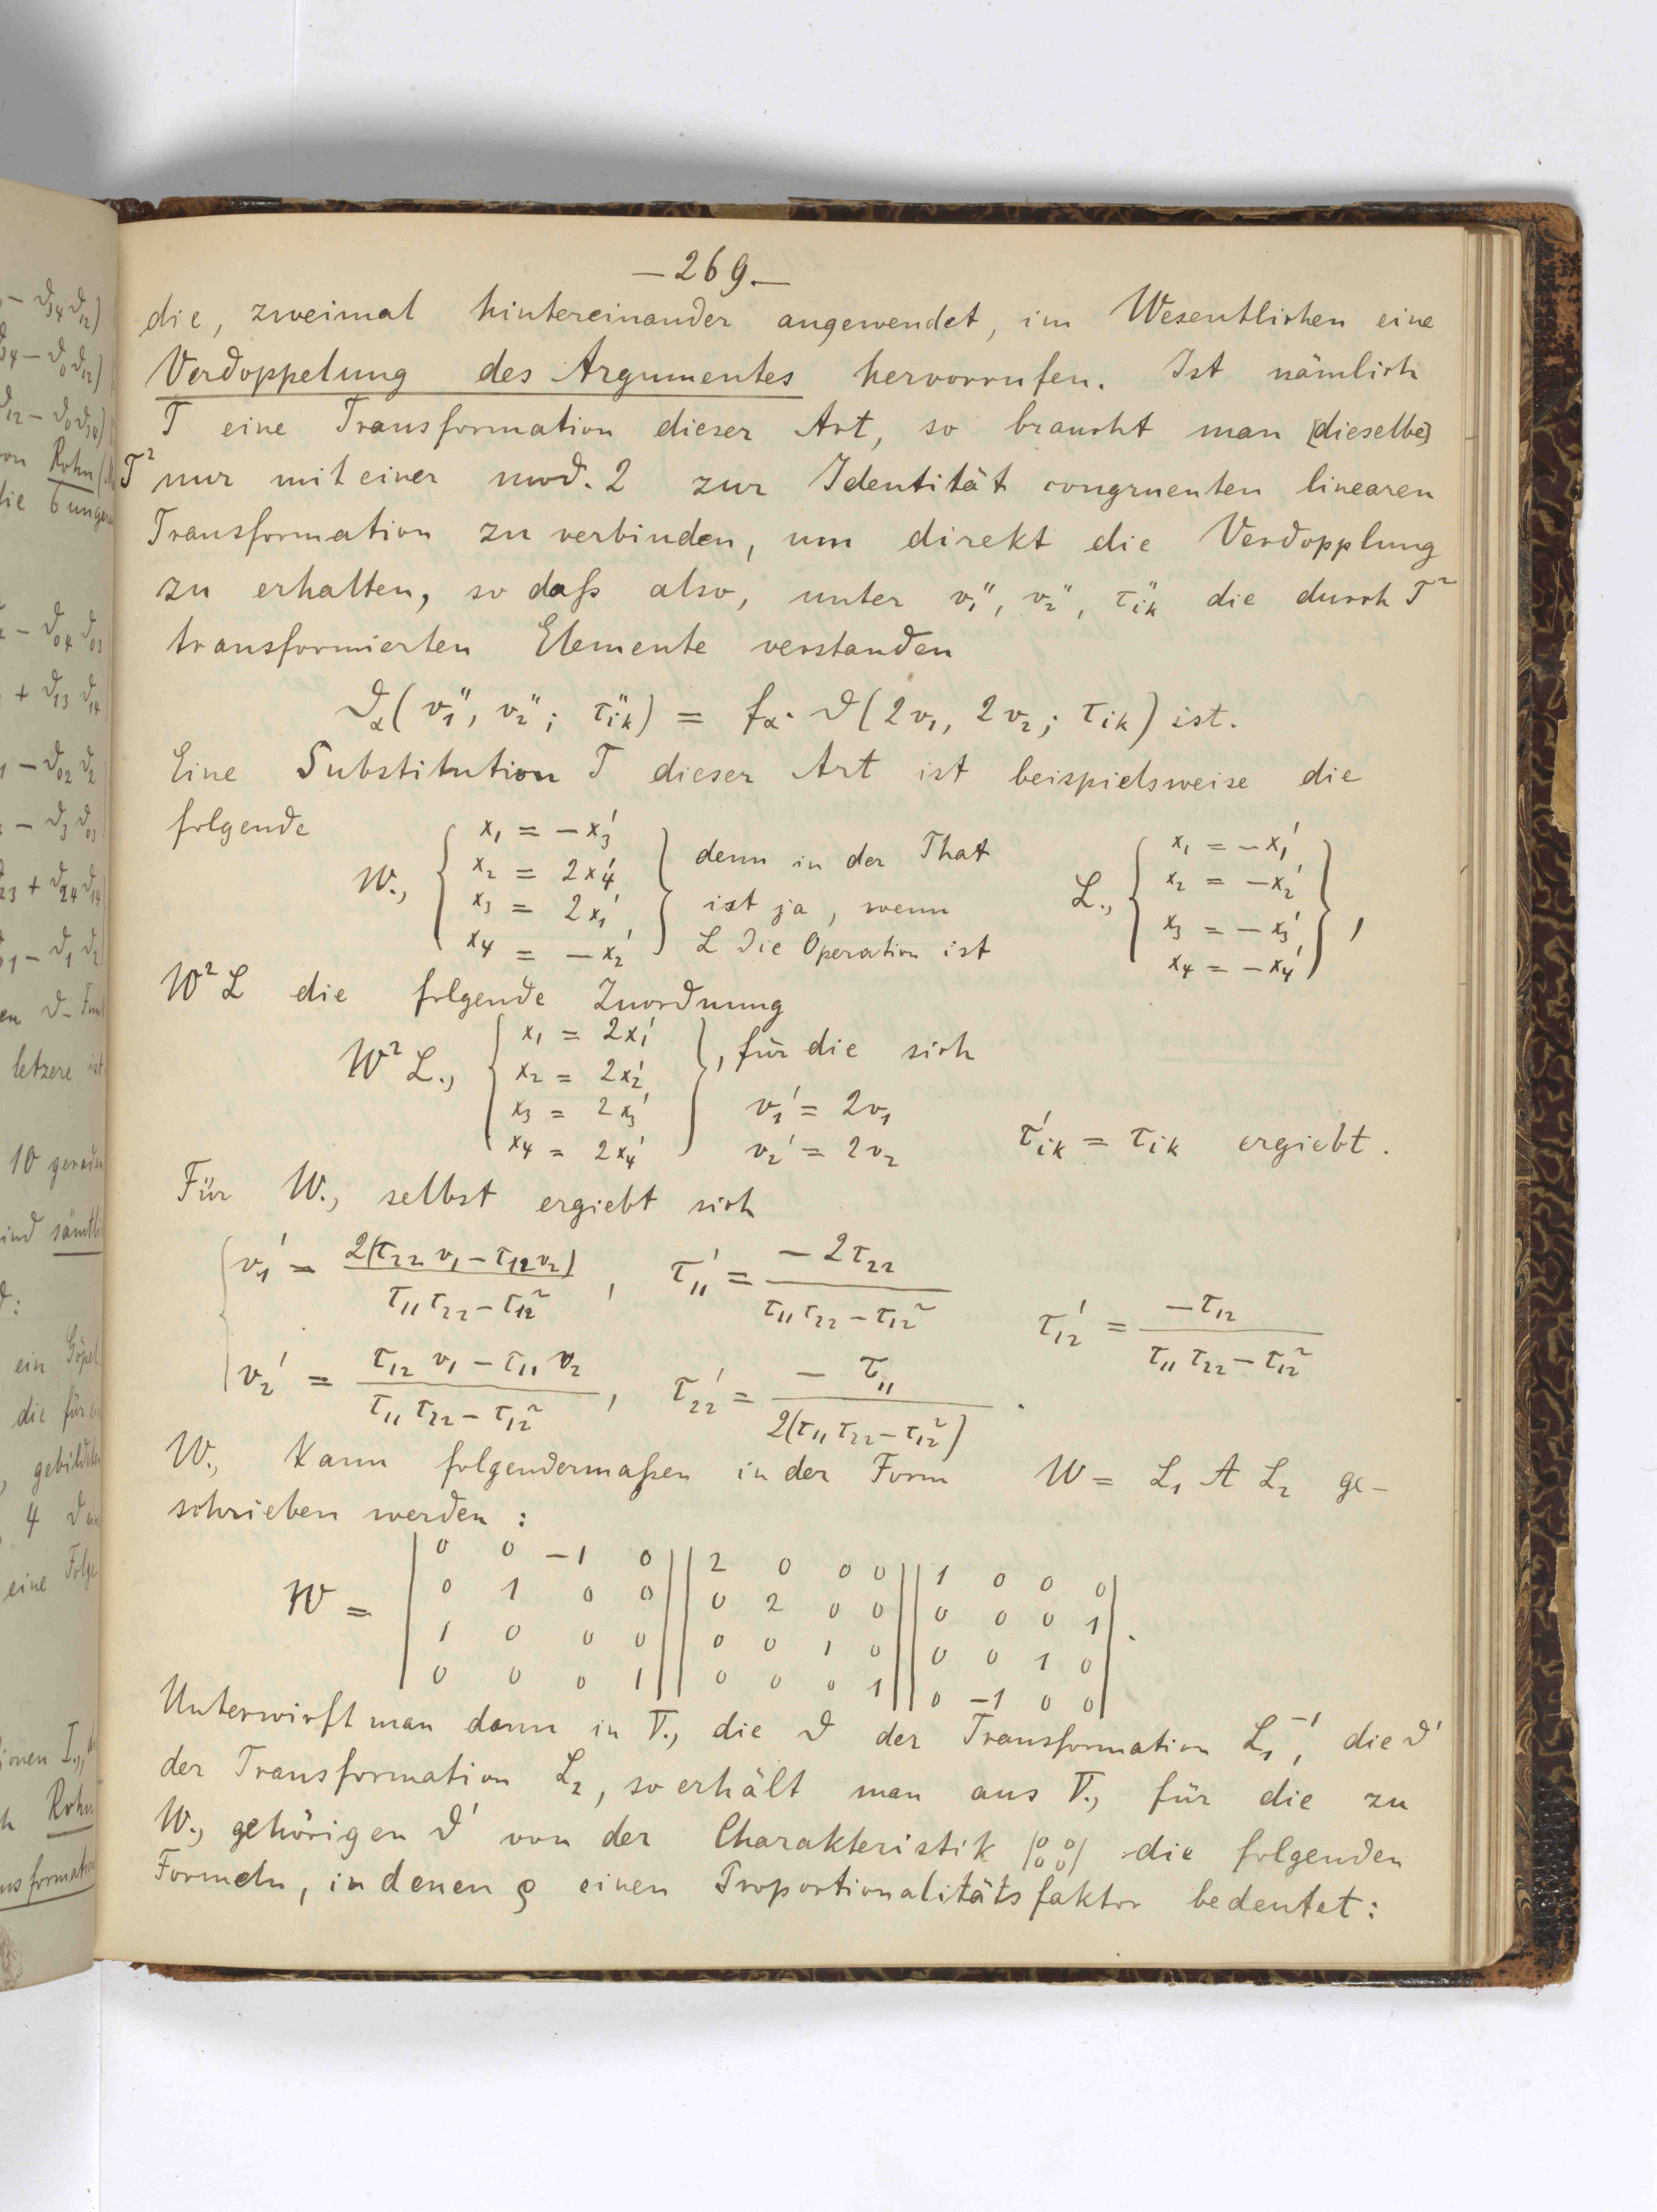 – ϑ34 ϑ12)
ϑ34 – ϑ0 ϑ12)
ϑ12 – ϑ0 ϑ34)
von Rohn
die 6 unger
– ϑ04 ϑ03
+ ϑ13 ϑ14
– ϑ02 ϑ2
– ϑ3 ϑ03
ϑ23 + ϑ24 ϑ14
– ϑ1 ϑ2
en ϑ-Funk
letzere ist
10 geraden
sind sämtli
ein Göpel
die für
gebildeten
4 ϑ ein
eine Folge
ionen I.,
Rohn
nsformation
– 269. –
die, zweimal hintereinander angewendet, im Wesentlichen eine
Verdoppelung des Argumentes hervorrufen. Ist nämlich
T eine Transformation dieser Art, so braucht man [dieselbe]
T² nur mit einer mod. 2 zur Identität congruenten linearen
Transformation zu verbinden, um direkt die Verdopplung
zu erhalten, so daß also, unter v₁'', v₂'', τ''ik die durch T²
transformierten Elemente verstanden
ϑα(v₁'', v₂''; τ''ik) = fα · ϑ(2v₁, 2v₂; τik) ist.
Eine Substitution T dieser Art ist beispielsweise die
folgende
W., { x₁ = –x₃'
x₂ = 2x₄'
x₃ = 2x₁'
x₄ = –x₂' }
denn in der That
ist ja, wenn
L die Operation ist
L., { x₁ = –x₁'
x₂ = –x₂'
x₃ = –x₃'
x₄ = –x₄' } ,
W²L die folgende Zuordnung
W²L., { x₁ = 2x₁'
x₂ = 2x₂'
x₃ = 2x₃'
x₄ = 2x₄' }
, für die sich
v₁' = 2v₁
v₂' = 2v₂
τ'ik = τik ergiebt.
Für W., selbst ergiebt sich
{ v₁' = 2(τ₂₂ v₁ – τ₁₂ v₂) / τ₁₁ τ₂₂ – τ₁₂² , τ₁₁' = – 2τ₂₂ / τ₁₁ τ₂₂ – τ₁₂² τ₁₂' = –τ₁₂ / τ₁₁ τ₂₂ – τ₁₂²
v₂' = τ₁₂ v₁ – τ₁₁ v₂ / τ₁₁ τ₂₂ – τ₁₂² , τ₂₂' = – τ₁₁ / 2(τ₁₁ τ₂₂ – τ₁₂²) .
W., kann folgendermaßen in der Form W = L₁ A L₂ ge-
schrieben werden :
W = | 0 0 –1 0 | | 2 0 0 0 | | 1 0 0 0 |
| 0 1 0 0 | | 0 2 0 0 | | 0 0 0 1 |
| 1 0 0 0 | | 0 0 1 0 | | 0 0 1 0 | .
| 0 0 0 1 | | 0 0 0 1 | | 0 –1 0 0 |
Unterwirft man dann in V., die ϑ der Transformation L₁⁻¹, die ϑ'
der Transformation L₂, so erhält man aus V., für die zu
W., gehörigen ϑ' von der Charakteristik |0 0 / 0 0| die folgenden
Formeln, in denen ϱ einen Proportionalitätsfaktor bedeutet: